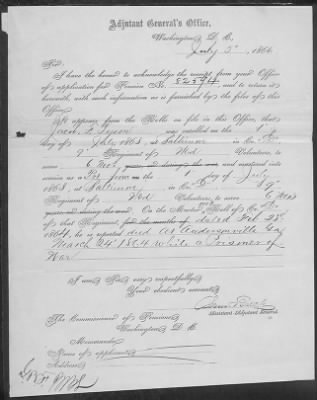 Adjutant General's Office,
Washington, D. C.
July 2d, 1866
Sir:
I have the honor to acknowledge the receipt from your Office
of application for Pension No. 82594, and to return it
herewith, with such information as is furnished by the files of this
Office.
It appears from the Rolls on file in this Office, that
was enrolled on the 1
day of July 1863, at Baltimore in Co.
9" Regiment of Md Volunteers, to
serve 6 Mos. years, or during the war and mustered into
service as a on the 1 day of July
1863, at Baltimore, in Co. 9"
Regiment of Md Volunteers, to serve 6 Mos
years, or during the war. On the Muster Out Roll of Co.
for the months of dated Feb 23d
1864, he is reported died at Andersonville Ga
March 24" 1864 while a Prisoner of
War
I am, Sir, very respectfully,
Your obedient servant,
Assistant Adjutant General
The Commissioner of Pensions,
Washington, D. C.
Memoranda:
Name of applicant
Address